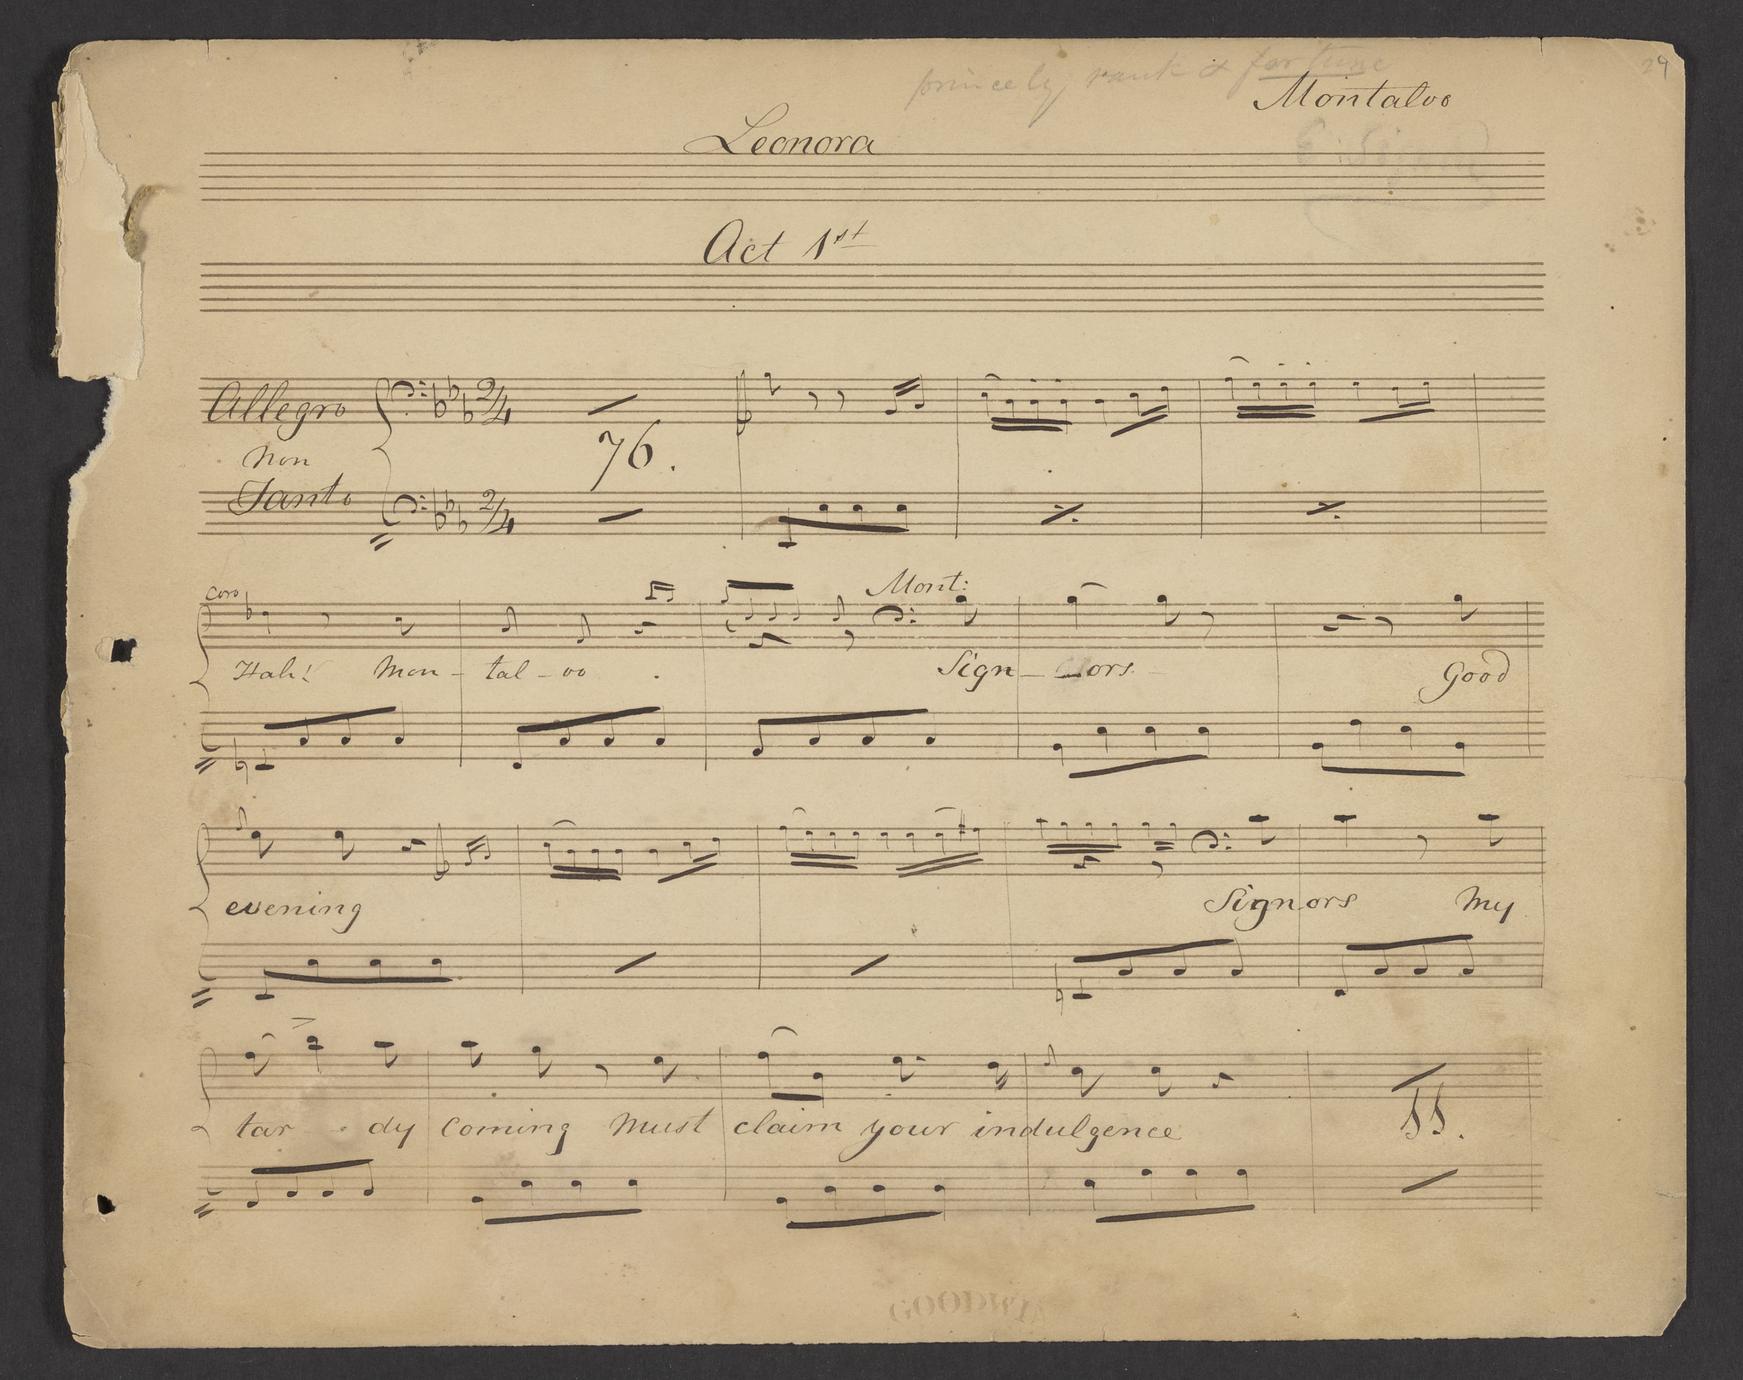 princely rank & fortune
29
Montalvo
Leonora
Act 1st
Allegro
non
Tanto
2/4
76.
2/4
Coro
Mont:
Hah! Mon - tal - vo . Sign - ors. Good
evening Signors My
tar - dy coming Must claim your indulgence
55.
GOODWIN